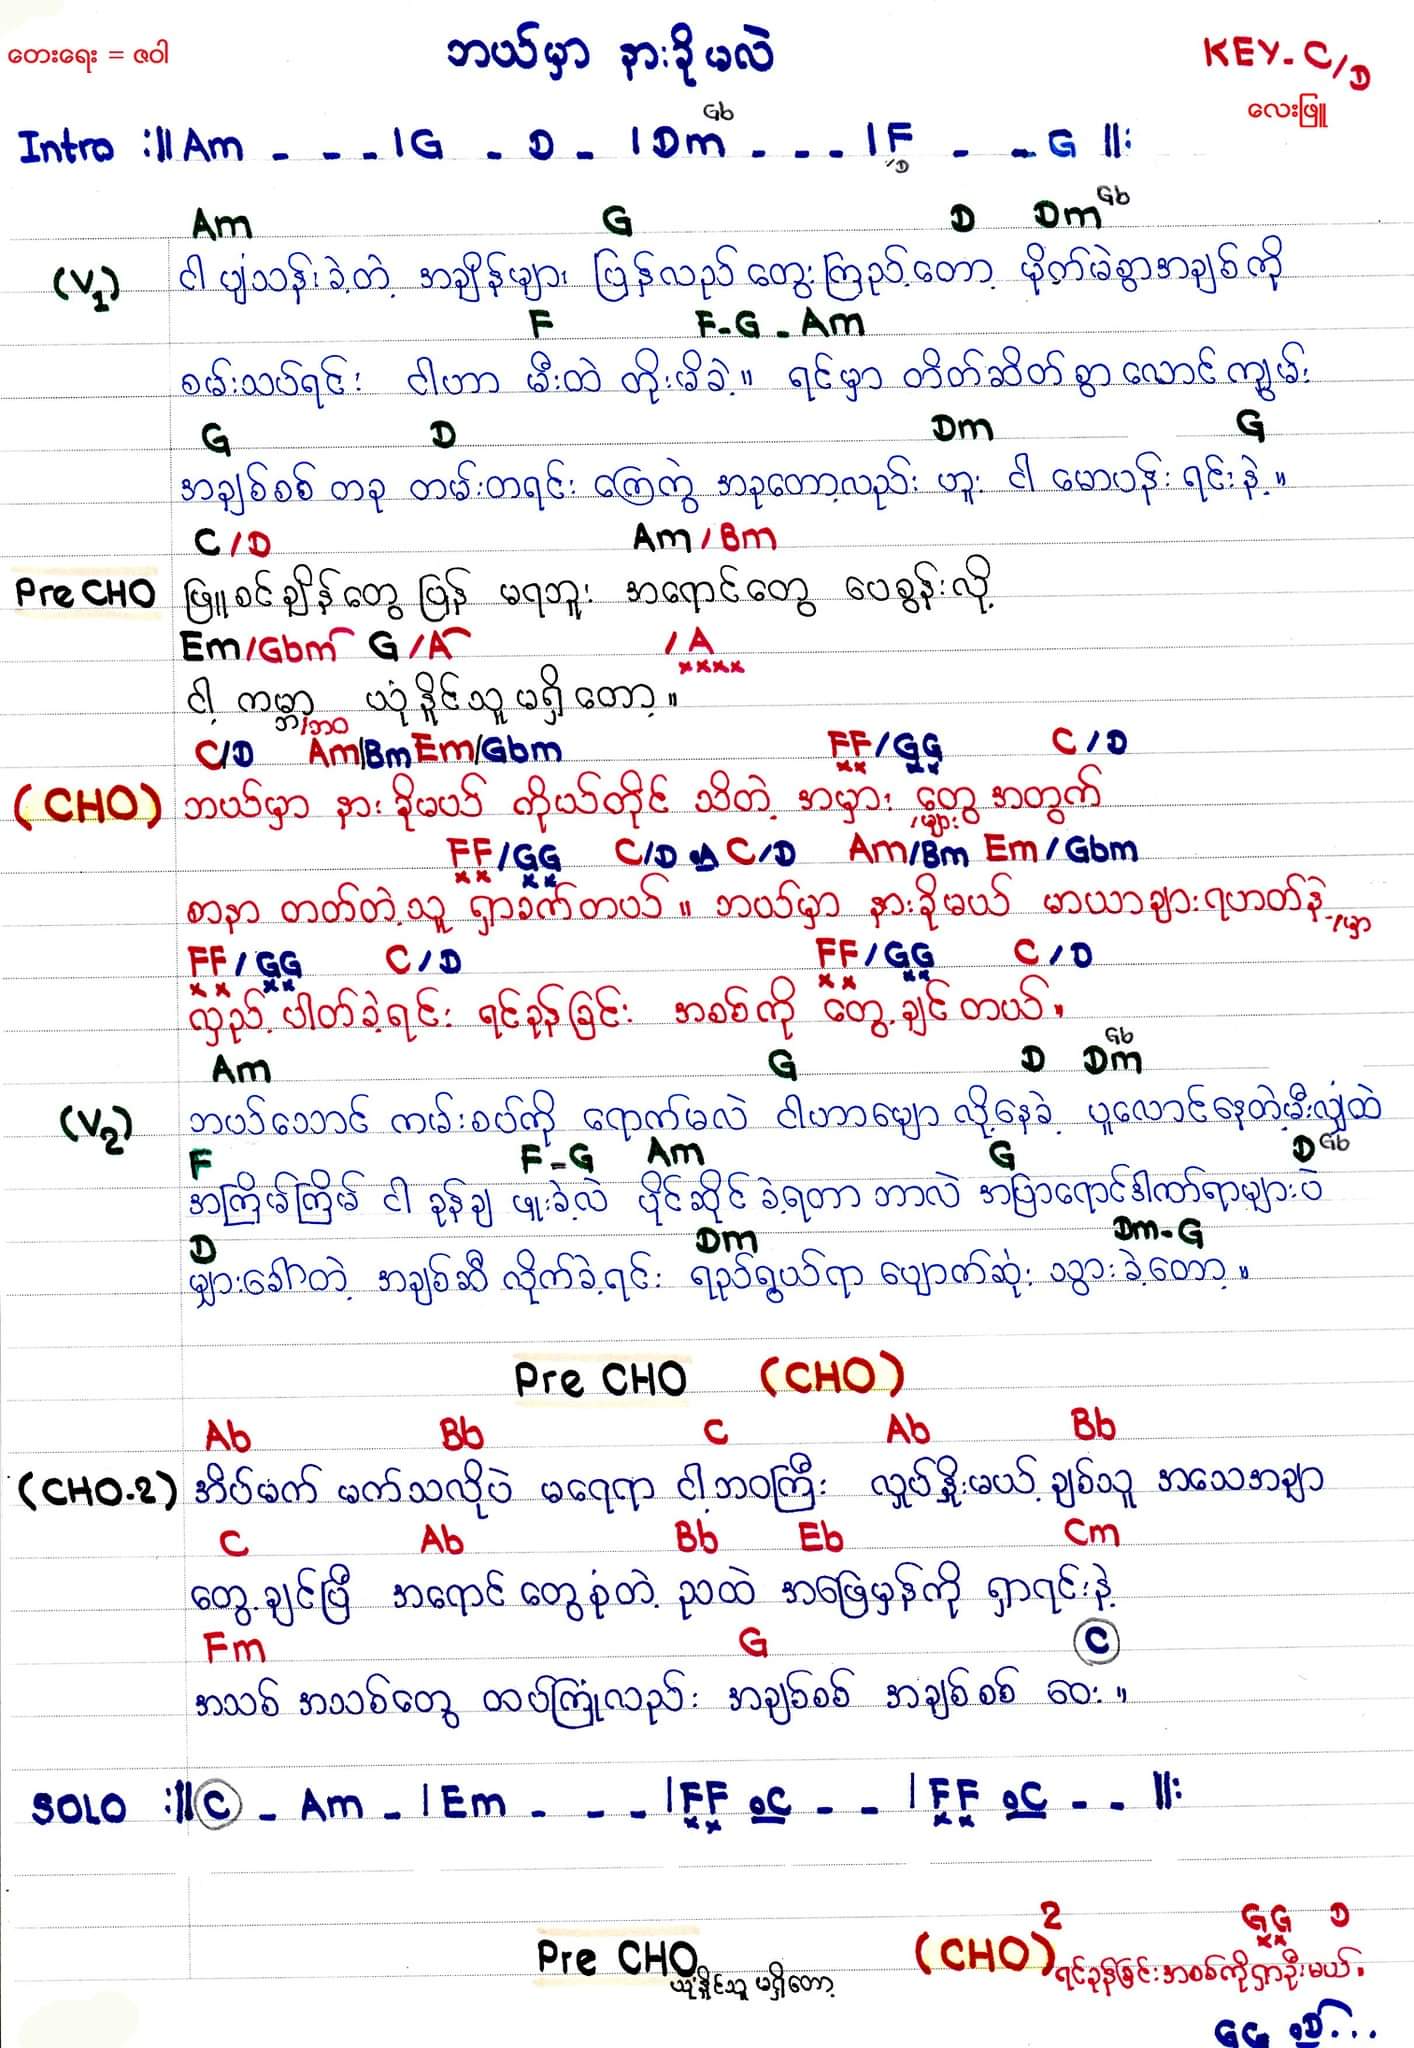 တေးရေး = ဇဝါ
ဘယ်မှာ နားခိုမလဲ
KEY - C/D
လေးဖြူ
Gb
Intro :|| Am - - - | G - D - | Dm - - - | F - - G ||:
/D
Am G D Dm Gb
(V1) ငါ ပျံသန်းခဲ့တဲ့ အချိန်များ ပြန်လည်တွေးကြည့်တော့ မိုက်မဲစွာအချစ်ကို
F F-G-Am
စမ်းသပ်ရင်း ငါဟာ မီးထဲ တိုးမိခဲ့။ ရင်မှာ တိတ်ဆိတ်စွာ လောင်ကျွမ်း
G D Dm G
အချစ်စစ် တခု တမ်းတရင်း ကြေကွဲ အခုတော့လည်း ဟူး ငါ မောပန်းရင်းနဲ့။
C/D Am/Bm
Pre CHO ဖြူစင်ချိန်တွေ ပြန် မရဘူး အရောင်တွေ ပေစွန်းလို့
Em/Gbm G/A /A
xxxx
ငါ့ ကမ္ဘာ ယုံနိုင်သူ မရှိတော့။
/ဘဝ
C/D Am/Bm Em/Gbm FF/GG C/D
xx xx
(CHO) ဘယ်မှာ နားခိုမယ် ကိုယ်တိုင် သိတဲ့ အမှား တွေ အတွက်
/များ
FF/GG C/D C/D Am/Bm Em/Gbm
xx xx
စာနာ တတ်တဲ့သူ ရှာခက်တယ်။ ဘယ်မှာ နားခိုမယ် မာယာများရဟတ်နဲ့ -/မှာ
FF/GG C/D FF/GG C/D
xx xx xx xx
လှည့် ပါတ်ခဲ့ရင်း ရင်ခုန်ခြင်း အစစ်ကို တွေ့ချင်တယ်။
Am G D Dm Gb
(V2) ဘယ်သောင် ကမ်းစပ်ကို ရောက်မလဲ ငါဟာမျောလို့နေခဲ့ ပူလောင်နေတဲ့မီးလျှံထဲ
F F-G Am G D Gb
အကြိမ်ကြိမ် ငါ ခုန်ချ ဖူးခဲ့လဲ ပိုင်ဆိုင်ခဲ့ရတာ ဘာလဲ အပြာရောင်ဒါဏ်ရာများပဲ
D Dm Dm-G
မျှားခေါ်တဲ့ အချစ်ဆီ လိုက်ခဲ့ရင်း ရည်ရွယ်ရာ ပျောက်ဆုံး သွားခဲ့တော့။
Pre CHO (CHO)
Ab Bb C Ab Bb
(CHO-2) အိပ်မက် မက်သလိုပဲ မရေရာ ငါ့ဘဝကြီး လှုပ်နှိုးမယ့်ချစ်သူ အသေအချာ
C Ab Bb Eb Cm
တွေ့ချင်ပြီ အရောင်တွေစုံတဲ့ ညထဲ အဖြေမှန်ကို ရှာရင်းနဲ့
Fm G C
အသစ် အသစ်တွေ ထပ်ကြုံလည်း အချစ်စစ် အချစ်စစ် ဝေး။
SOLO :|| C - Am - | Em - - - | FF C - - | FF C - - ||:
xx xx
Pre CHO ယုံနိုင်သူ မရှိတော့
(CHO)2
GG D
xx
ရင်ခုန်ခြင်းအစစ်ကိုရှာဦးမယ်။
GG D...